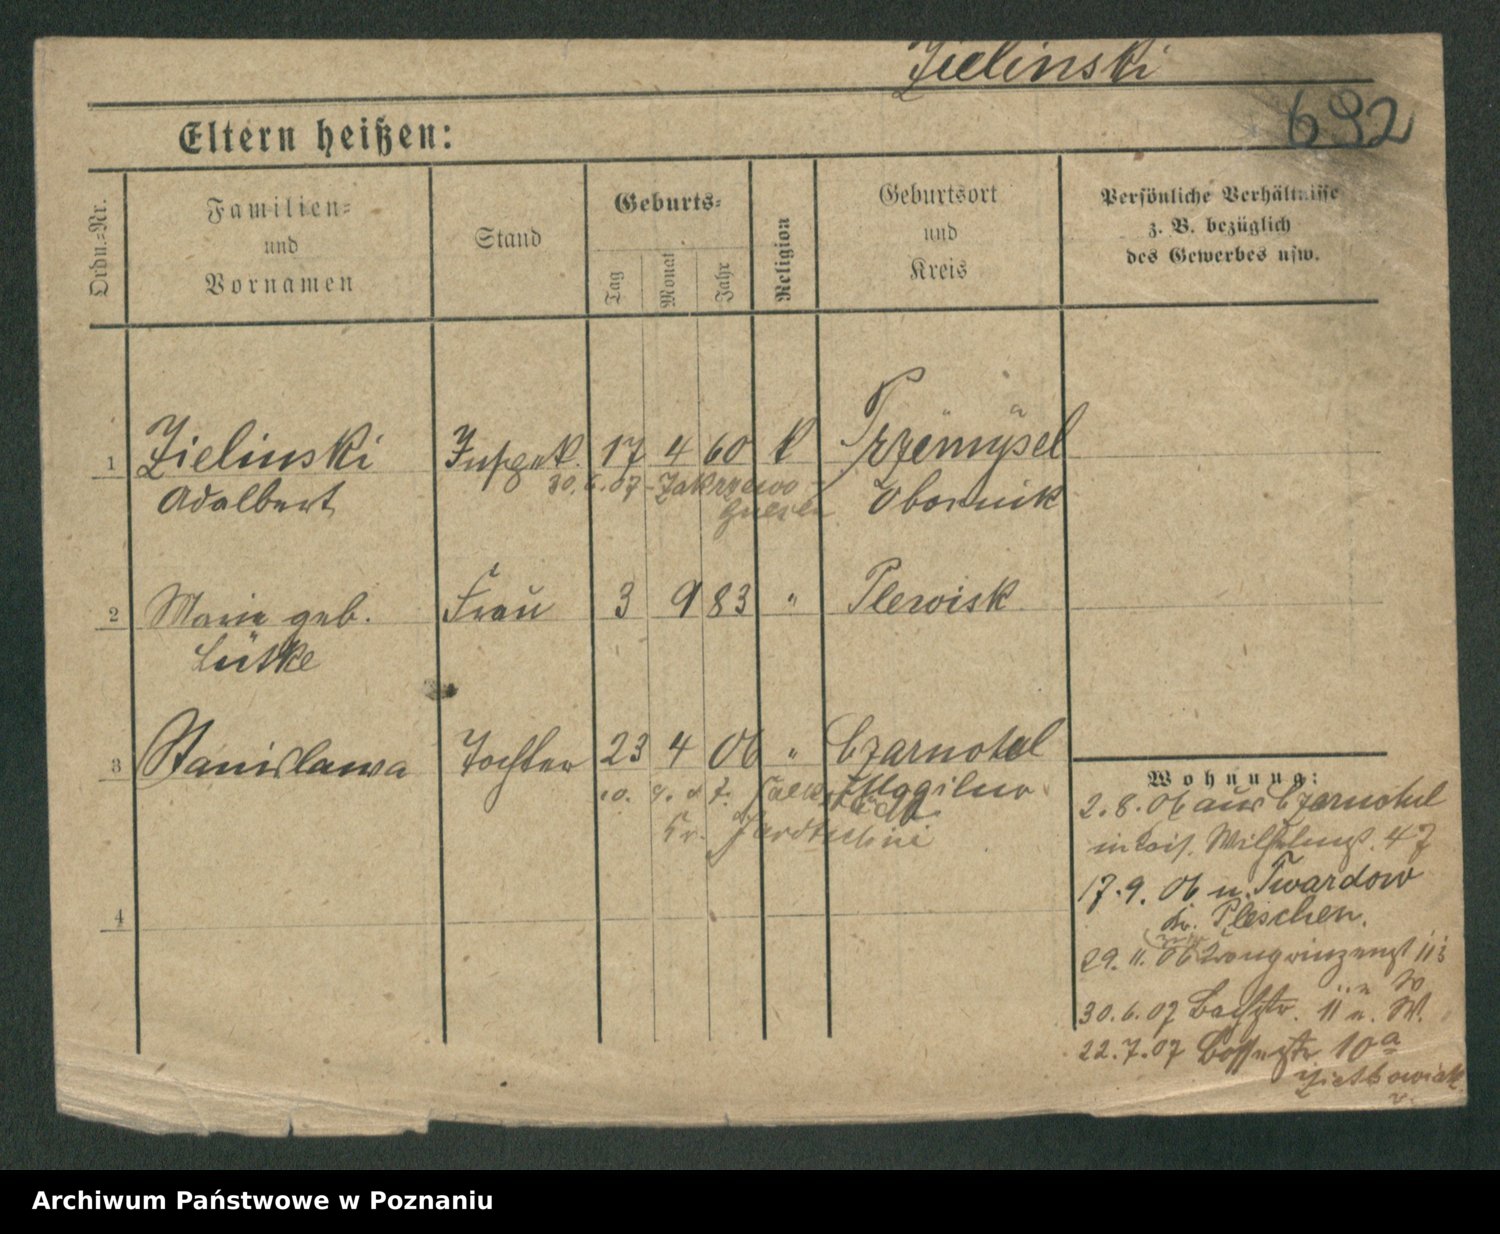 Zielinski
692
Eltern heißen:
Ordn.-Nr.
Familien-
und
Vornamen
Stand
Geburts-
Tag
Monat
Jahr
Religion
Geburtsort
und
Kreis
Persönliche Verhältnisse
z. B. bezüglich
des Gewerbes usw.
1 Zielinski Inspekt. 17 4 60 k Przemysel
Adalbert Obornik
30.6.07 - Zakrzewo -
2 Marie geb. Frau 3 9 83 " Plewisk
Lütke
3 Stanislawa Tochter 23 4 06 " Czarnotul
Mogilno
Kr.
4
Wohnung:
2.8.06 aus Czarnotul
in Wilhelmst. 47
17.9.06 n. Twardow
Kr. Pleschen.
29.11.06
30.6.07 Bachstr. 11 n. W.
22.7.07 10a
Archiwum Państwowe w Poznaniu